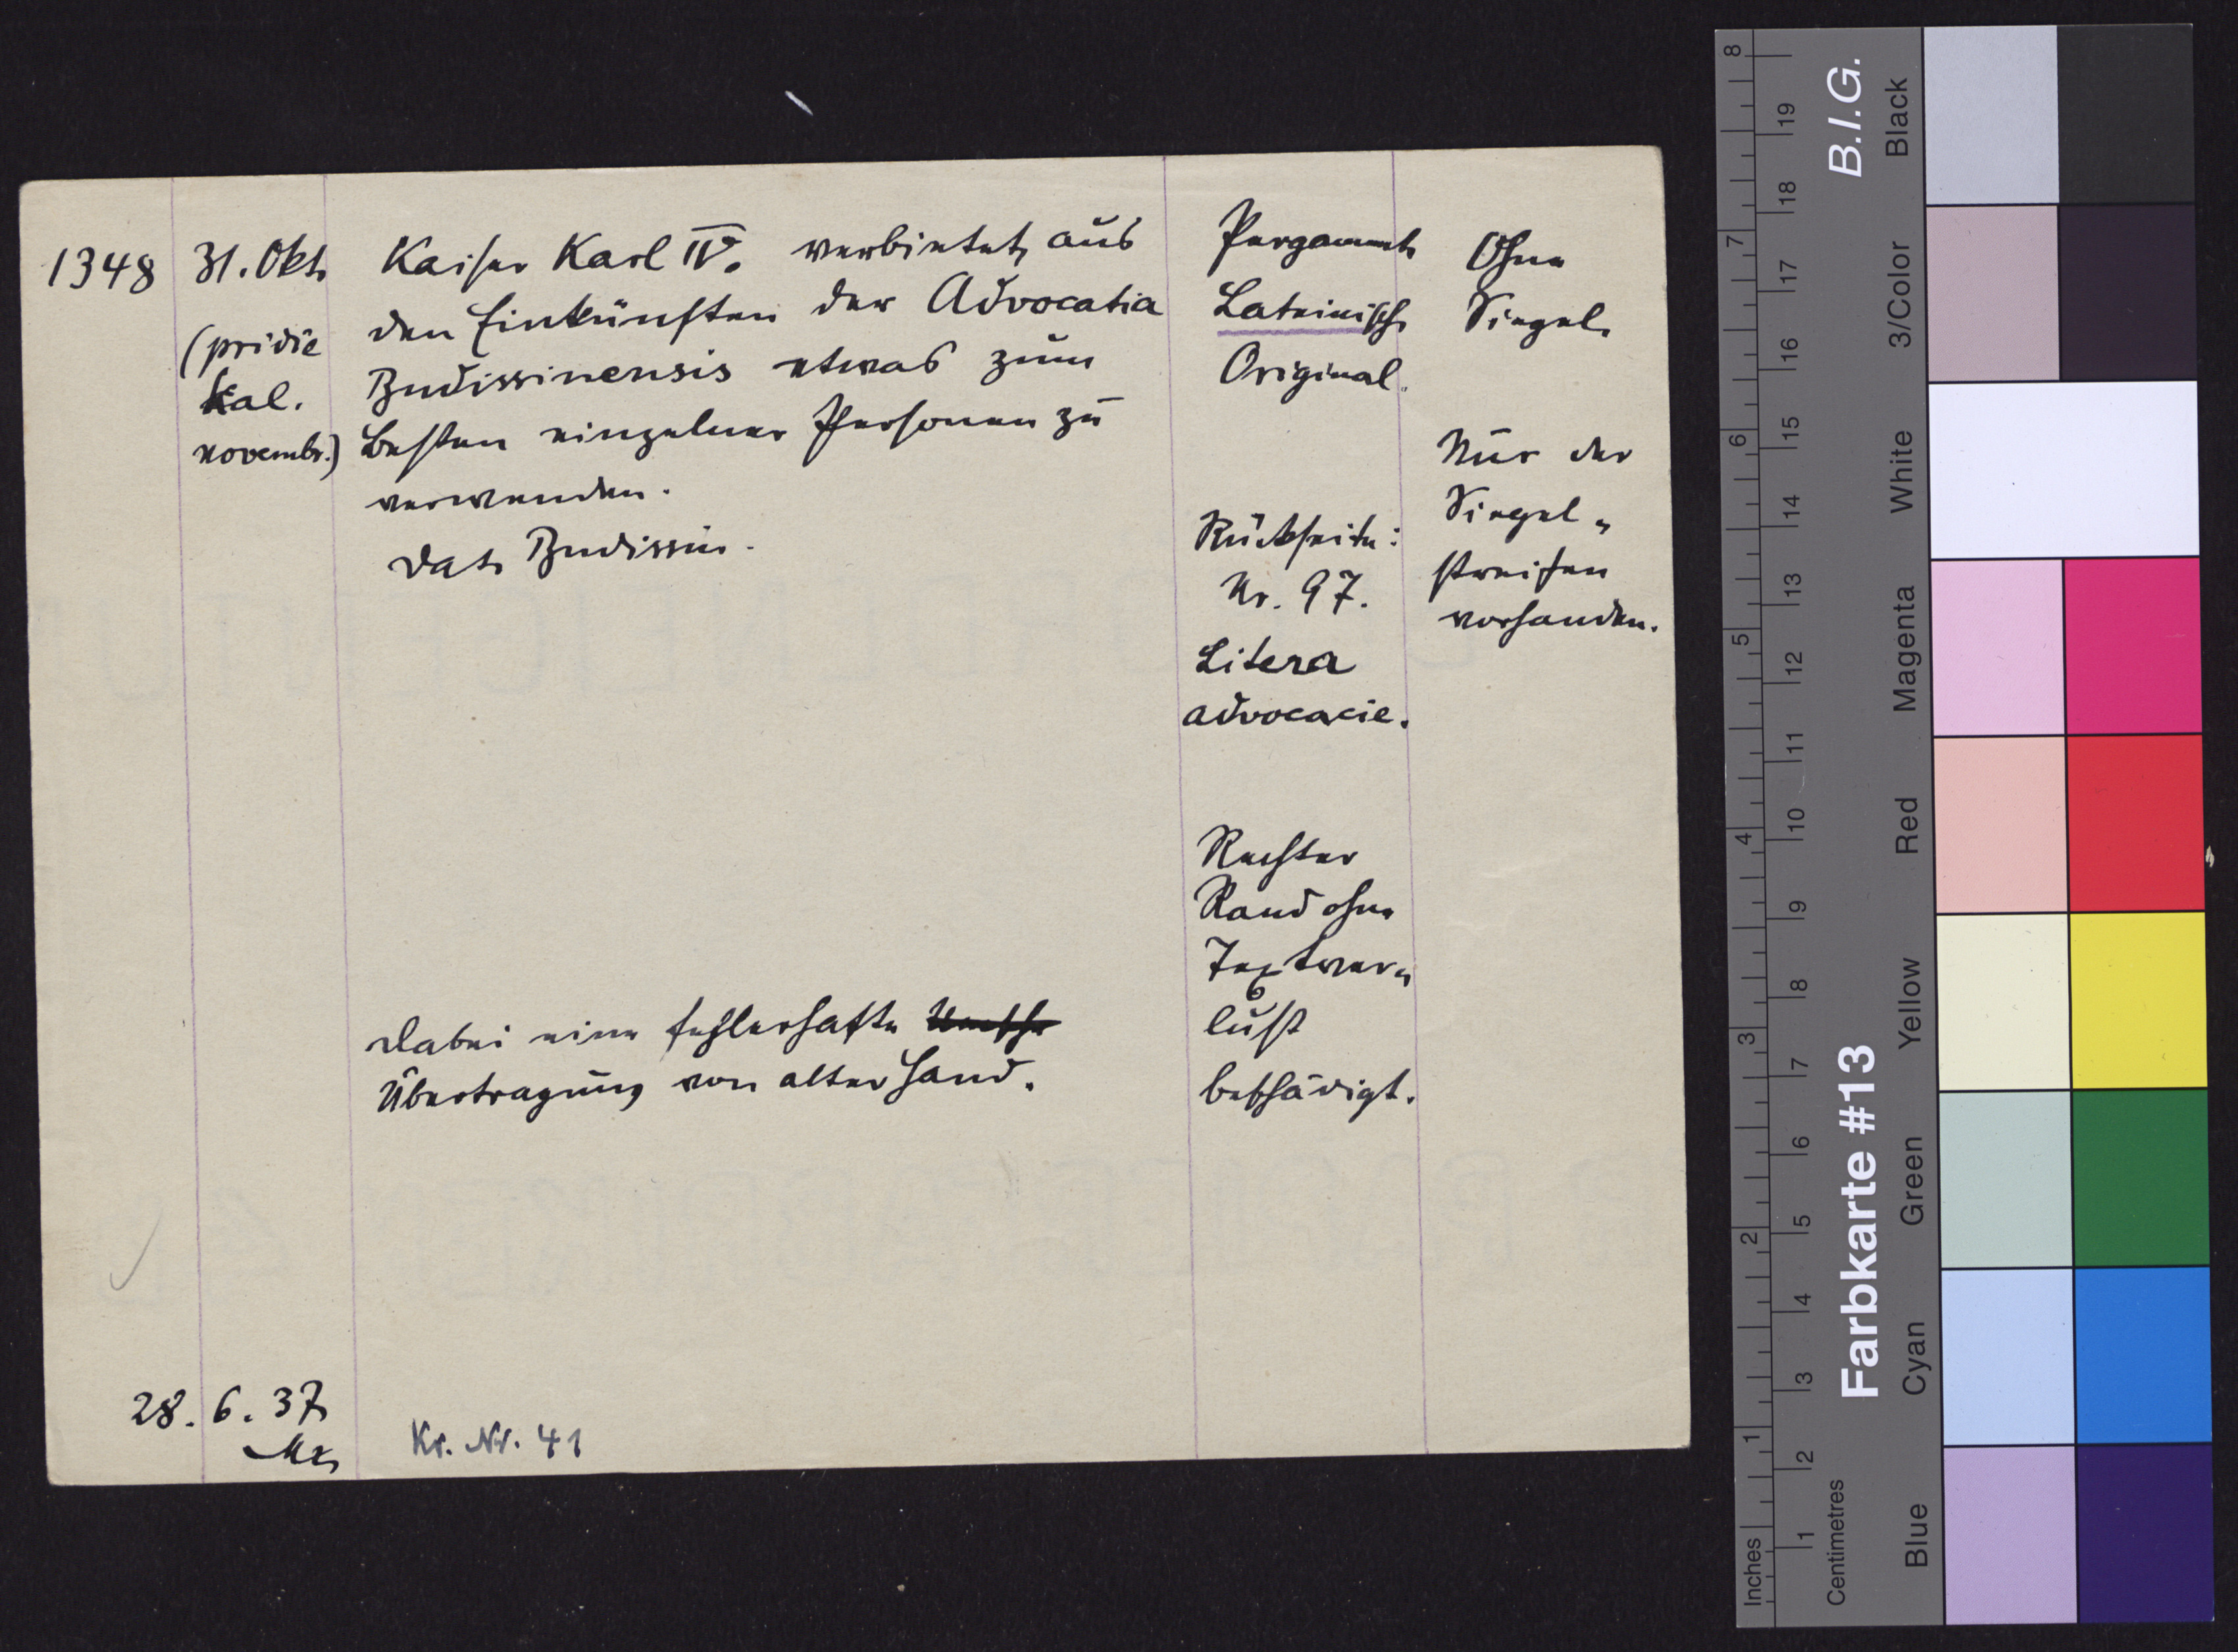 1348
31. Okt.
(pridie
Kal.
novembr.)
Kaiser Karl IV. verbietet, aus
den Einkünften der Advocatia
Budissinensis etwas zum
Besten einzelner Personen zu
verwenden.
Dat. Budissin.
Dabei eine fehlerhafte
Übertragung von alter Hand.
Pergament
Lateinisch
Original.
Rückseite:
Nr. 97.
Litera
advocacie.
Rechter
Rand ohne
Textver-
lust
beschädigt.
Ohne
Siegel.
Nur der
Siegel-
streifen
vorhanden.
28. 6. 37
Kr. Nr. 41
Inches
1
2
3
4
5
6
7
8
Centimetres
1
2
3
4
5
6
7
8
9
10
11
12
13
14
15
16
17
18
19
Farbkarte #13
B.I.G.
Blue
Cyan
Green
Yellow
Red
Magenta
White
3/Color
Black